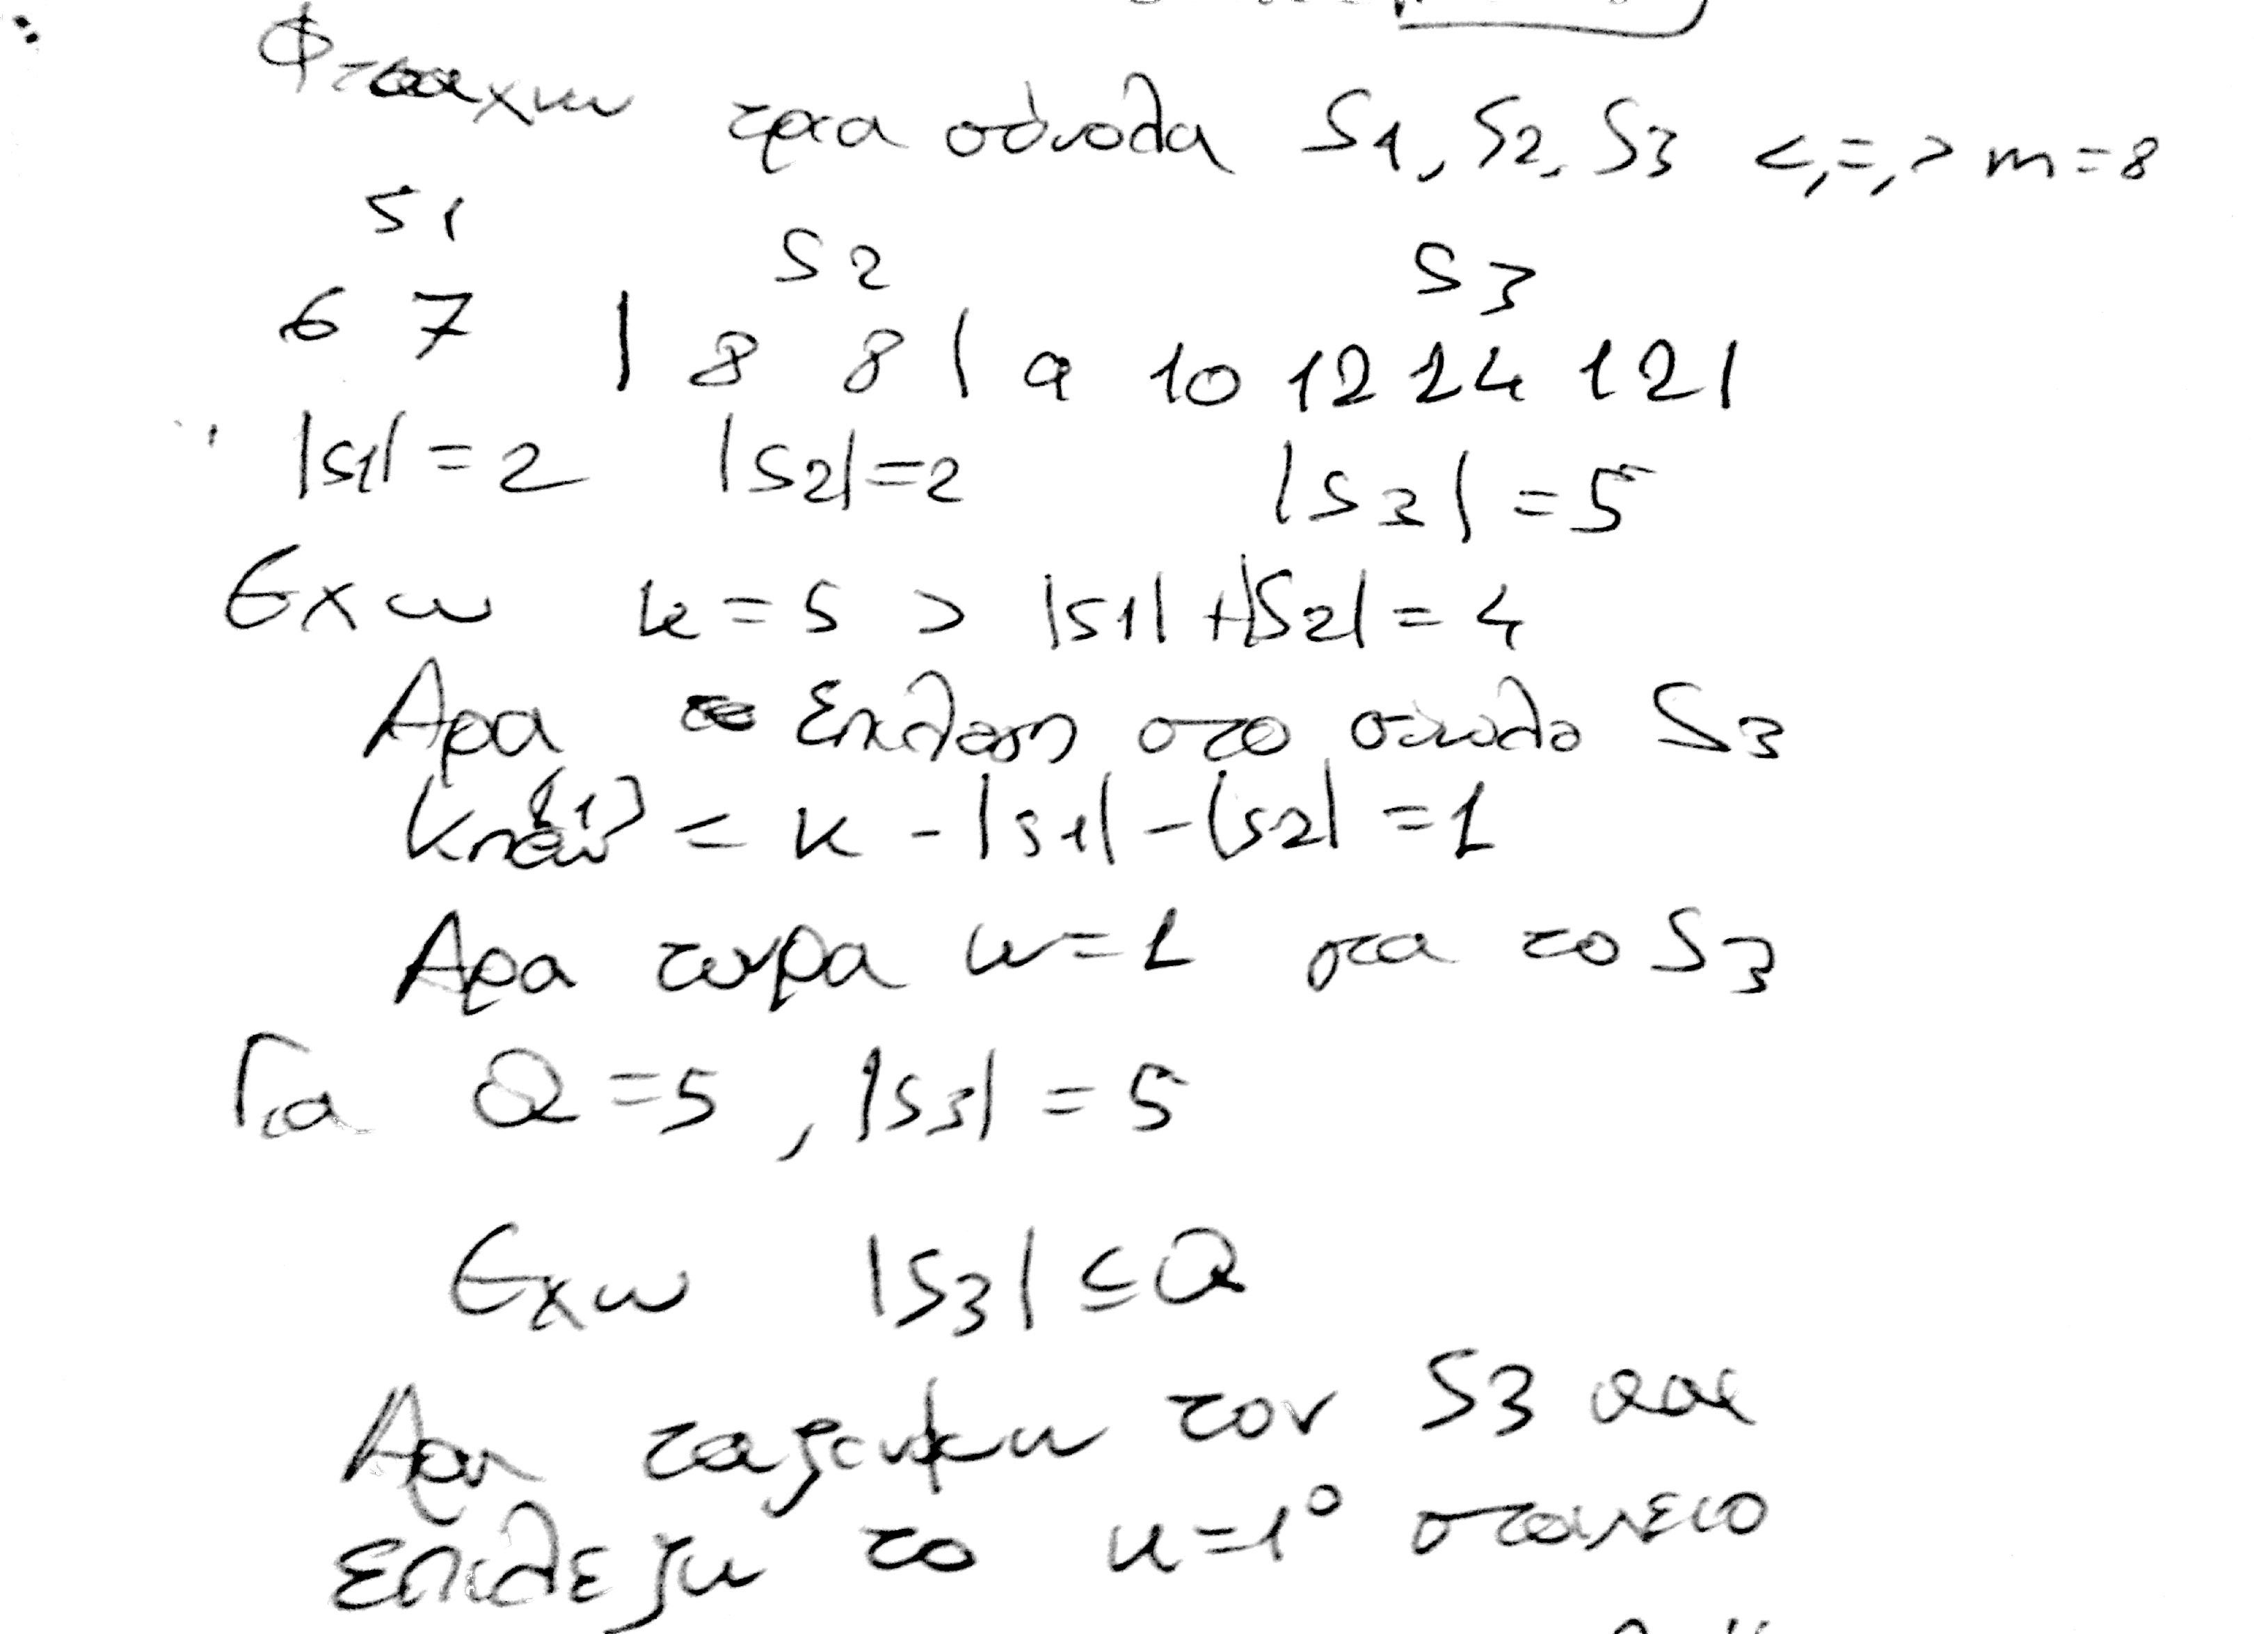 Φτιαχνω τρια σύνολα S1, S2, S3 <,=,> m=8
S1 S2 S3
6 7 | 8 8 | 9 10 12 24 121
|S1|=2 |S2|=2 |S3|=5
Εχω k=5 > |S1|+|S2|=4
Αρα επιλογη στο σύνολο S3
Knew = k-|S1|-|S2|=1
Αρα τωρα k=1 για το S3
Για Q=5, |S3|=5
Εχω |S3|≤Q
Αρα ταξινομω τον S3 και
επιλεγω το k=1° στοιχειο